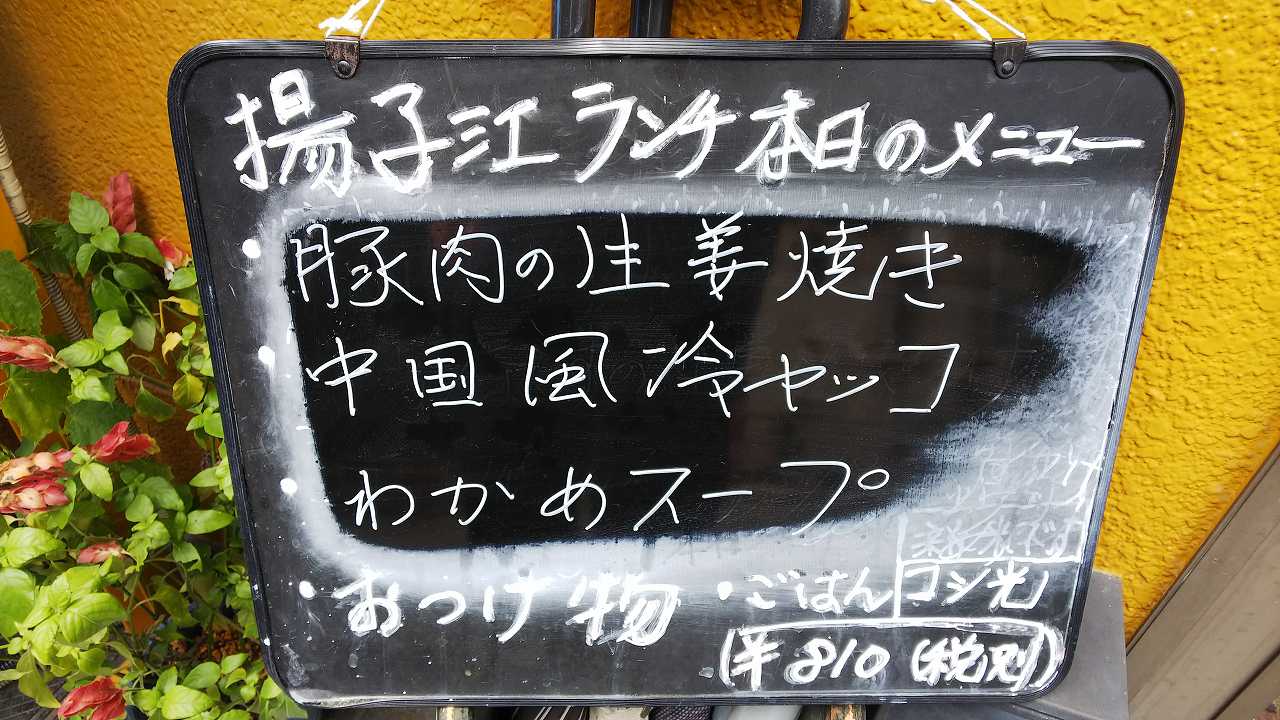 揚子江ランチ本日のメニュー
・豚肉の生姜焼き
・中国風冷ヤッコ
・わかめスープ
・おつけ物 ・ごはん コシ光
(¥810(税別))